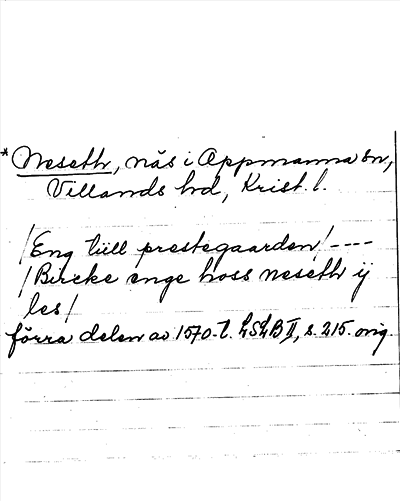 * Neseth, näs i Oppmanna sn,
Villands hd, Krist. l.
/Eng till prestegaarden/ ----
/Bircke enge hoss neseth ij
les/
förra delen av 1570-t. LSLB II, s. 215. orig.